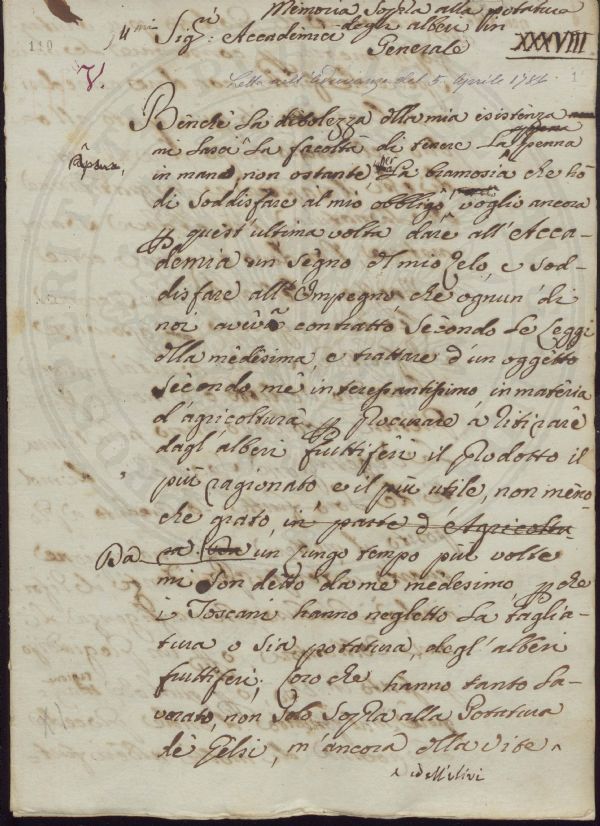 Memoria Sopra alla potatura
degli alberi in
Generale
Sig:ri Accademici
XXXVIII
110
V.
Letta nell'Adunanza del 5 Aprile 1786.
1
Benche La debolezza della mia esistenza
mi Lasci La facoltà di tenere La penna
appena,
in mano, non ostante, per La bramosia che hò
di Soddisfare al mio obbligo, voglio ancora
p quest'ultima volta dare all'Acca-
demia un Segno del mio Zelo, e Sod-
disfare all'Impegno che ognun' di
noi aveva contratto, Secondo Le Leggi
della medesima, e trattare d'un oggetto
Secondo me interessantissimo, in materia
d'agricoltura p Procurare a ritirare
dagl'alberi fruttiferi il Prodotto il
più ragionato e il più utile, non meno
che grato, in parte d'Agricoltu-
ra
Da un lungo tempo più volte
mi Son detto da me medesimo, p che
i Toscani hanno negletto La taglia-
tura o sia potatura, degl'alberi
fruttiferi; Loro che hanno tanto La-
vorato, non Solo Sopra alla Potatura
dè Gelsi, m'ancora della vite
e dell'Ulivi